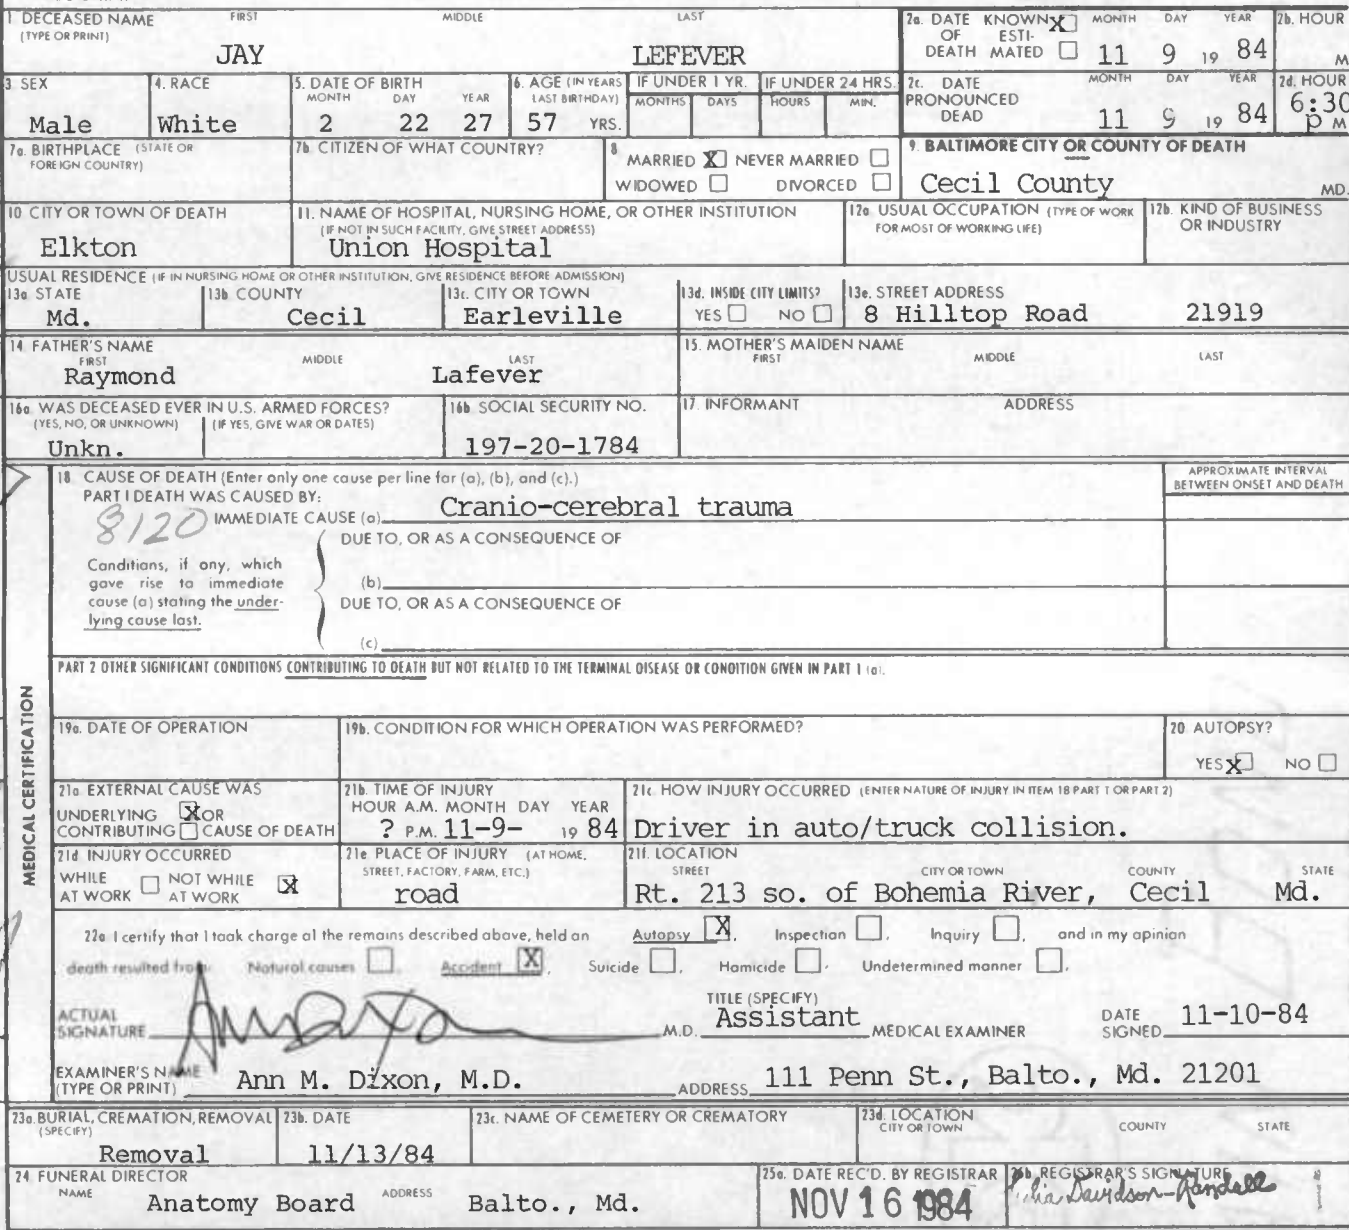 1 DECEASED NAME FIRST MIDDLE LAST
(TYPE OR PRINT)
JAY LEFEVER
2a. DATE KNOWN X MONTH DAY YEAR
OF ESTI-
DEATH MATED 11 9 19 84
2b. HOUR
M
3 SEX
Male
4. RACE
White
5. DATE OF BIRTH
MONTH DAY YEAR
2 22 27
6. AGE (IN YEARS
LAST BIRTHDAY)
57 YRS.
IF UNDER 1 YR.
MONTHS DAYS
IF UNDER 24 HRS.
HOURS MIN.
2c. DATE MONTH DAY YEAR
PRONOUNCED
DEAD 11 9 19 84
2d. HOUR
6:30
P M
7a. BIRTHPLACE (STATE OR
FOREIGN COUNTRY)
7b. CITIZEN OF WHAT COUNTRY?
8
MARRIED X NEVER MARRIED
WIDOWED DIVORCED
9. BALTIMORE CITY OR COUNTY OF DEATH
Cecil County MD.
10 CITY OR TOWN OF DEATH
Elkton
11. NAME OF HOSPITAL, NURSING HOME, OR OTHER INSTITUTION
(IF NOT IN SUCH FACILITY, GIVE STREET ADDRESS)
Union Hospital
12a. USUAL OCCUPATION (TYPE OF WORK
FOR MOST OF WORKING LIFE)
12b. KIND OF BUSINESS
OR INDUSTRY
USUAL RESIDENCE (IF IN NURSING HOME OR OTHER INSTITUTION, GIVE RESIDENCE BEFORE ADMISSION)
13a STATE
Md.
13b COUNTY
Cecil
13c. CITY OR TOWN
Earleville
13d. INSIDE CITY LIMITS?
YES NO
13e. STREET ADDRESS
8 Hilltop Road 21919
14 FATHER'S NAME
FIRST MIDDLE LAST
Raymond Lafever
15. MOTHER'S MAIDEN NAME
FIRST MIDDLE LAST
16a WAS DECEASED EVER IN U.S. ARMED FORCES?
(YES, NO, OR UNKNOWN) (IF YES, GIVE WAR OR DATES)
Unkn.
16b SOCIAL SECURITY NO.
197-20-1784
17. INFORMANT ADDRESS
18 CAUSE OF DEATH (Enter only one cause per line for (a), (b), and (c).)
PART I DEATH WAS CAUSED BY:
8120 IMMEDIATE CAUSE (a) Cranio-cerebral trauma
APPROXIMATE INTERVAL
BETWEEN ONSET AND DEATH
DUE TO, OR AS A CONSEQUENCE OF
Conditions, if any, which
gave rise to immediate
cause (a) stating the under-
lying cause last.
(b)
DUE TO, OR AS A CONSEQUENCE OF
(c)
PART 2 OTHER SIGNIFICANT CONDITIONS CONTRIBUTING TO DEATH BUT NOT RELATED TO THE TERMINAL DISEASE OR CONDITION GIVEN IN PART 1 (a).
MEDICAL CERTIFICATION
19a. DATE OF OPERATION
19b. CONDITION FOR WHICH OPERATION WAS PERFORMED?
20 AUTOPSY?
YES X NO
21a EXTERNAL CAUSE WAS
UNDERLYING X OR
CONTRIBUTING CAUSE OF DEATH
21b. TIME OF INJURY
HOUR A.M. MONTH DAY YEAR
? P.M. 11-9- 19 84
21c. HOW INJURY OCCURRED (ENTER NATURE OF INJURY IN ITEM 18 PART 1 OR PART 2)
Driver in auto/truck collision.
21d INJURY OCCURRED
WHILE NOT WHILE X
AT WORK AT WORK
21e PLACE OF INJURY (AT HOME,
STREET, FACTORY, FARM, ETC.)
road
21f. LOCATION
STREET CITY OR TOWN COUNTY STATE
Rt. 213 so. of Bohemia River, Cecil Md.
22a I certify that I took charge of the remains described above, held an Autopsy X, Inspection , Inquiry , and in my opinion
death resulted from: Natural causes , Accident X, Suicide , Homicide , Undetermined manner .
ACTUAL
SIGNATURE M.D.
TITLE (SPECIFY)
Assistant MEDICAL EXAMINER
DATE
SIGNED 11-10-84
EXAMINER'S NAME
(TYPE OR PRINT) Ann M. Dixon, M.D. ADDRESS 111 Penn St., Balto., Md. 21201
23a. BURIAL, CREMATION, REMOVAL
(SPECIFY)
Removal
23b. DATE
11/13/84
23c. NAME OF CEMETERY OR CREMATORY
23d. LOCATION
CITY OR TOWN COUNTY STATE
24 FUNERAL DIRECTOR
NAME Anatomy Board ADDRESS Balto., Md.
25a. DATE REC'D. BY REGISTRAR
NOV 16 1984
26b. REGISTRAR'S SIGNATURE
Davidson-Randall